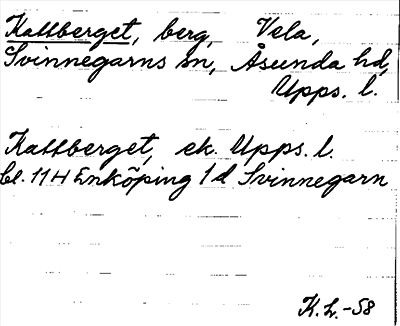 Kattberget, berg, Vela,
Svinnegarns sn, Åsunda hd,
Upps. l.
Kattberget, ek. Upps. l.
bl. 11H Enköping 1d Svinnegarn
K.L.-58